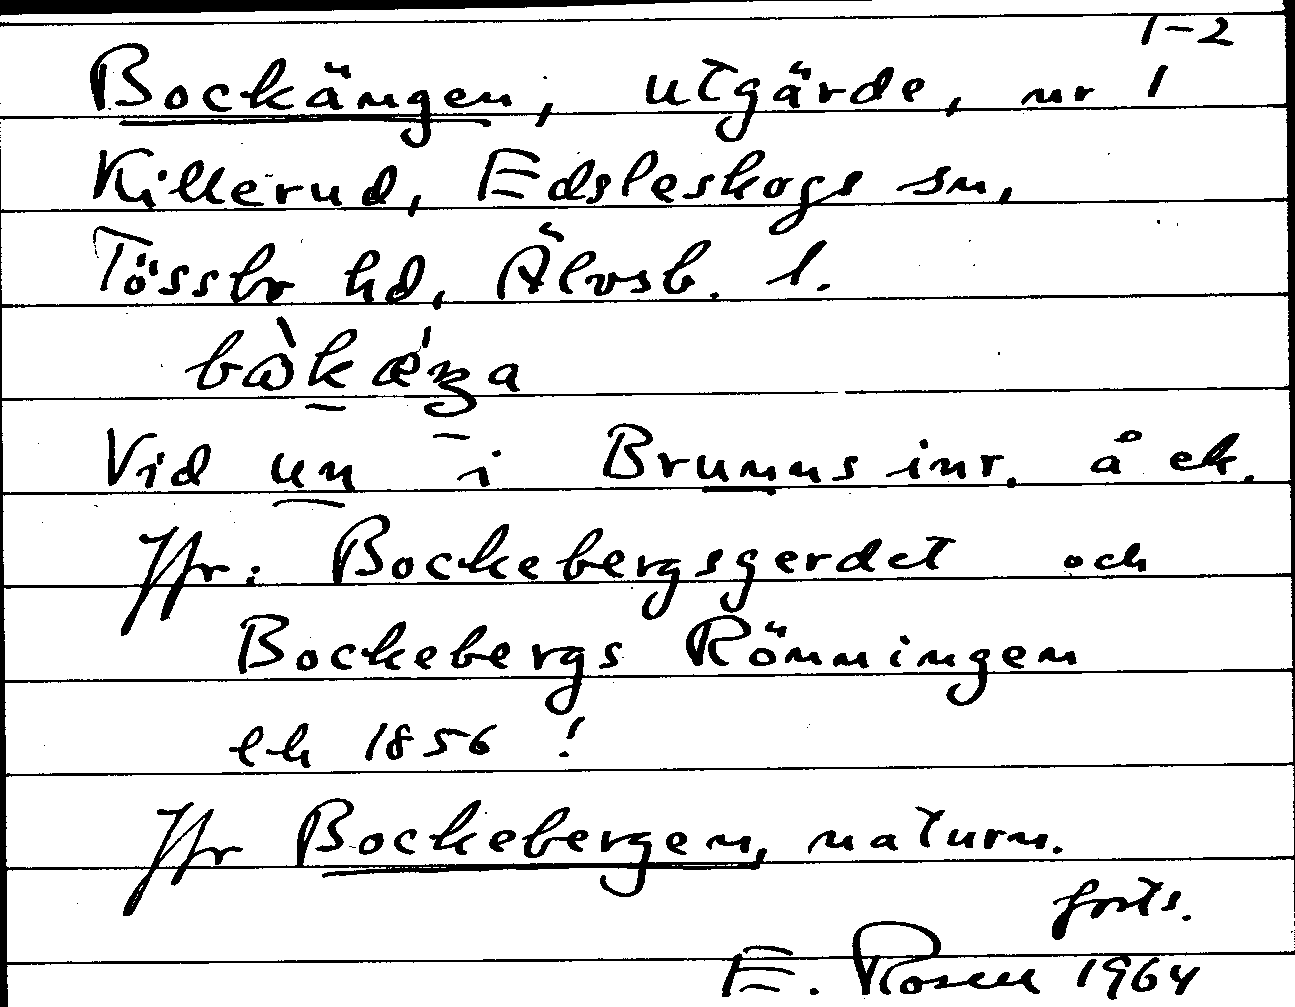 1-2
Bockängen, utgärde, nr 1
Killerud, Edsleskogs sn,
Tössbo hd, Älvsb. l.
Vid un i Brumms inr. å ek.
Jfr: Bockebergsgerdet och
Bockebergs Rönningen
lh 1856 !
Jfr Bockebergen, naturn.
forts.
E. Rosell 1964